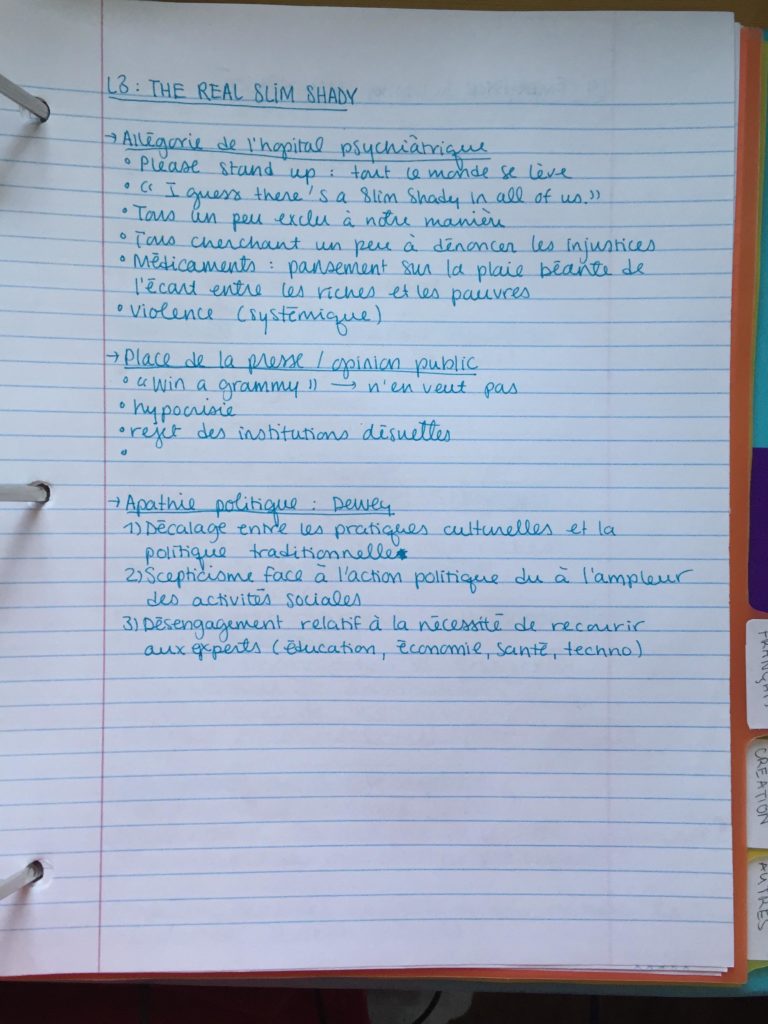 L3 : THE REAL SLIM SHADY
→ Allégorie de l'hopital psychiâtrique
• Please stand up : tout le monde se lève
• " I guess there's a Slim Shady in all of us."
• Tous un peu exclu à notre manière
• Tous cherchant un peu à dénoncer les injustices
• Médicaments : pansement sur la plaie béante de
l'écart entre les riches et les pauvres
• Violence (systémique)
→ Place de la presse / opinion public
• "Win a grammy" → n'en veut pas
• hypocrisie
• rejet des institutions désuettes
•
→ Apathie politique : Dewey
1) Décalage entre les pratiques culturelles et la
politique traditionnelle
2) Scepticisme face à l'action politique du à l'ampleur
des activités sociales
3) Désengagement relatif à la nécessité de recourir
aux experts (éducation, économie, santé, techno)
FRANÇAIS
CRÉATION
AUTRES